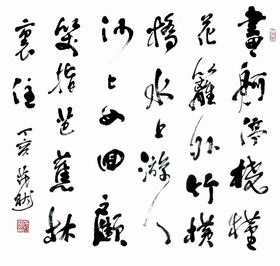 畫舸停橈槿
花籬外竹橫
橋水上游人
沙上女回顧
笑指芭蕉林
裏住
丁亥